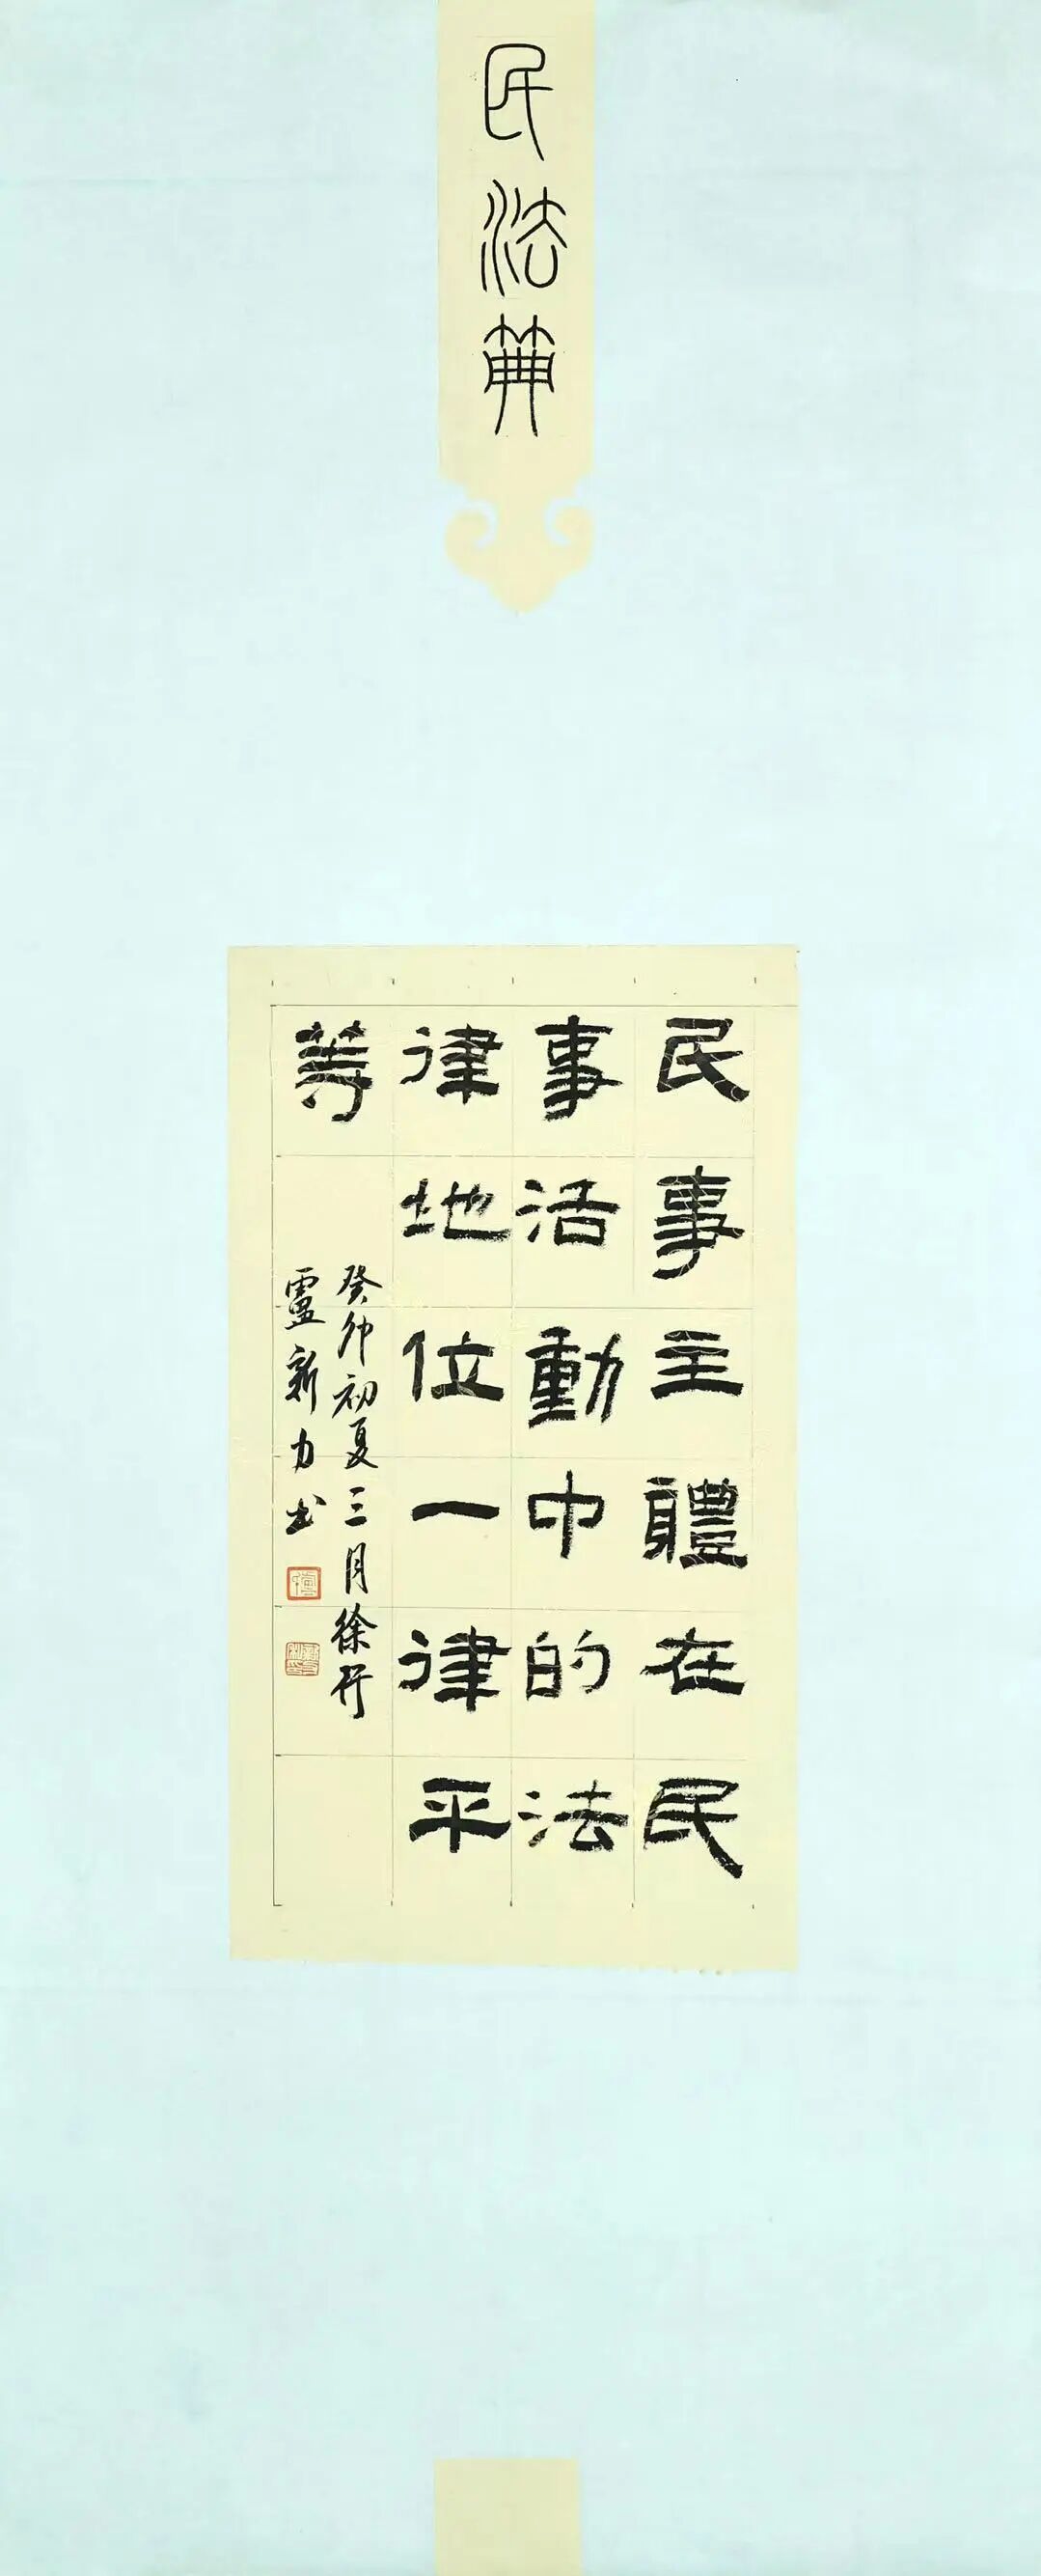 民法典
民事主體在民
事活動中的法
律地位一律平
等
癸卯初夏三月徐行
盧新力书